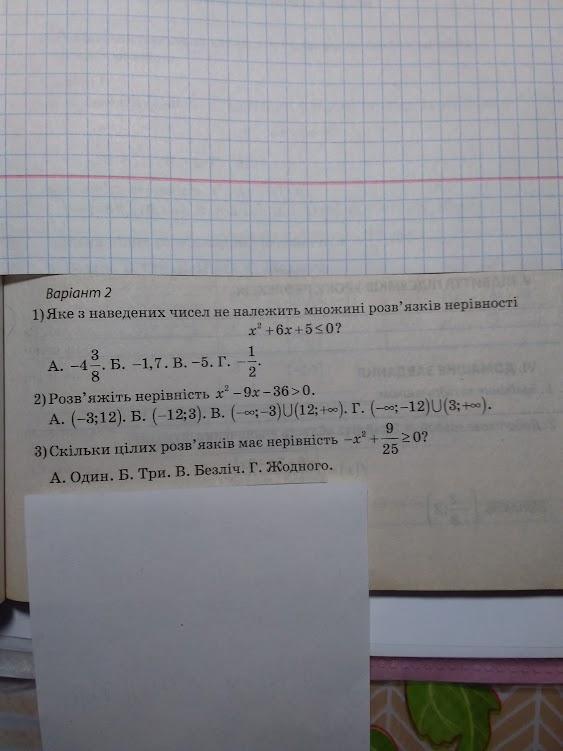 Варіант 2
1) Яке з наведених чисел не належить множині розв’язків нерівності
x² + 6x + 5 ≤ 0?
А. −4 3/8. Б. −1,7. В. −5. Г. −1/2.
2) Розв’яжіть нерівність x² − 9x − 36 > 0.
А. (−3;12). Б. (−12;3). В. (−∞;−3)∪(12;+∞). Г. (−∞;−12)∪(3;+∞).
3) Скільки цілих розв’язків має нерівність −x² + 9/25 ≥ 0?
А. Один. Б. Три. В. Безліч. Г. Жодного.